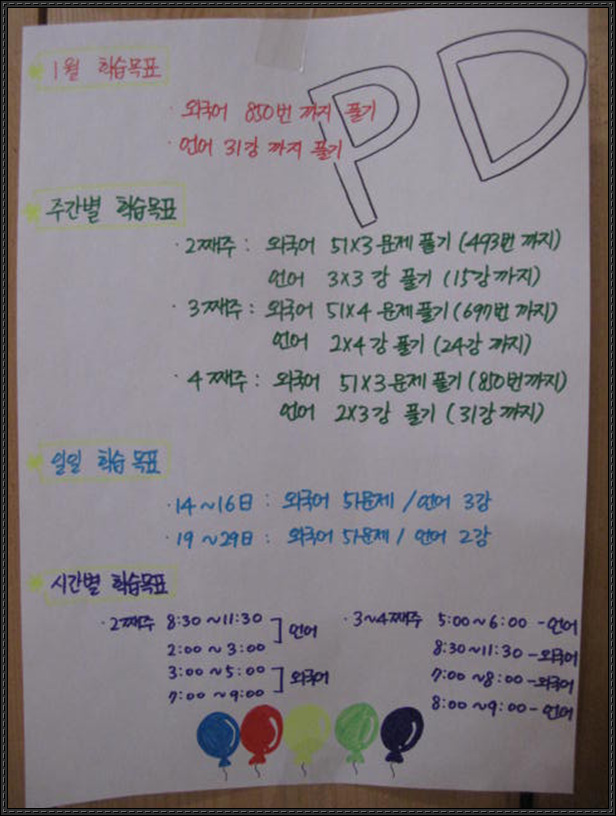 PD
1월 학습목표
· 외국어 850번 까지 풀기
· 언어 31강 까지 풀기
주간별 학습목표
· 2째주 : 외국어 51X3 문제 풀기 (493번 까지)
언어 3X3 강 풀기 (15강 까지)
· 3째주 : 외국어 51X4 문제 풀기 (697번 까지)
언어 2X4 강 풀기 (24강 까지)
· 4째주 : 외국어 51X3 문제 풀기 (850번 까지)
언어 2X3 강 풀기 (31강 까지)
일일 학습 목표
· 14~16日 : 외국어 51문제 / 언어 3강
· 19~29日 : 외국어 51문제 / 언어 2강
시간별 학습목표
· 2째주 8:30~11:30
2:00~3:00
] 언어
3:00~5:00
7:00~9:00
] 외국어
· 3~4째주 5:00~6:00 - 언어
8:30~11:30 - 외국어
7:00~8:00 - 외국어
8:00~9:00 - 언어